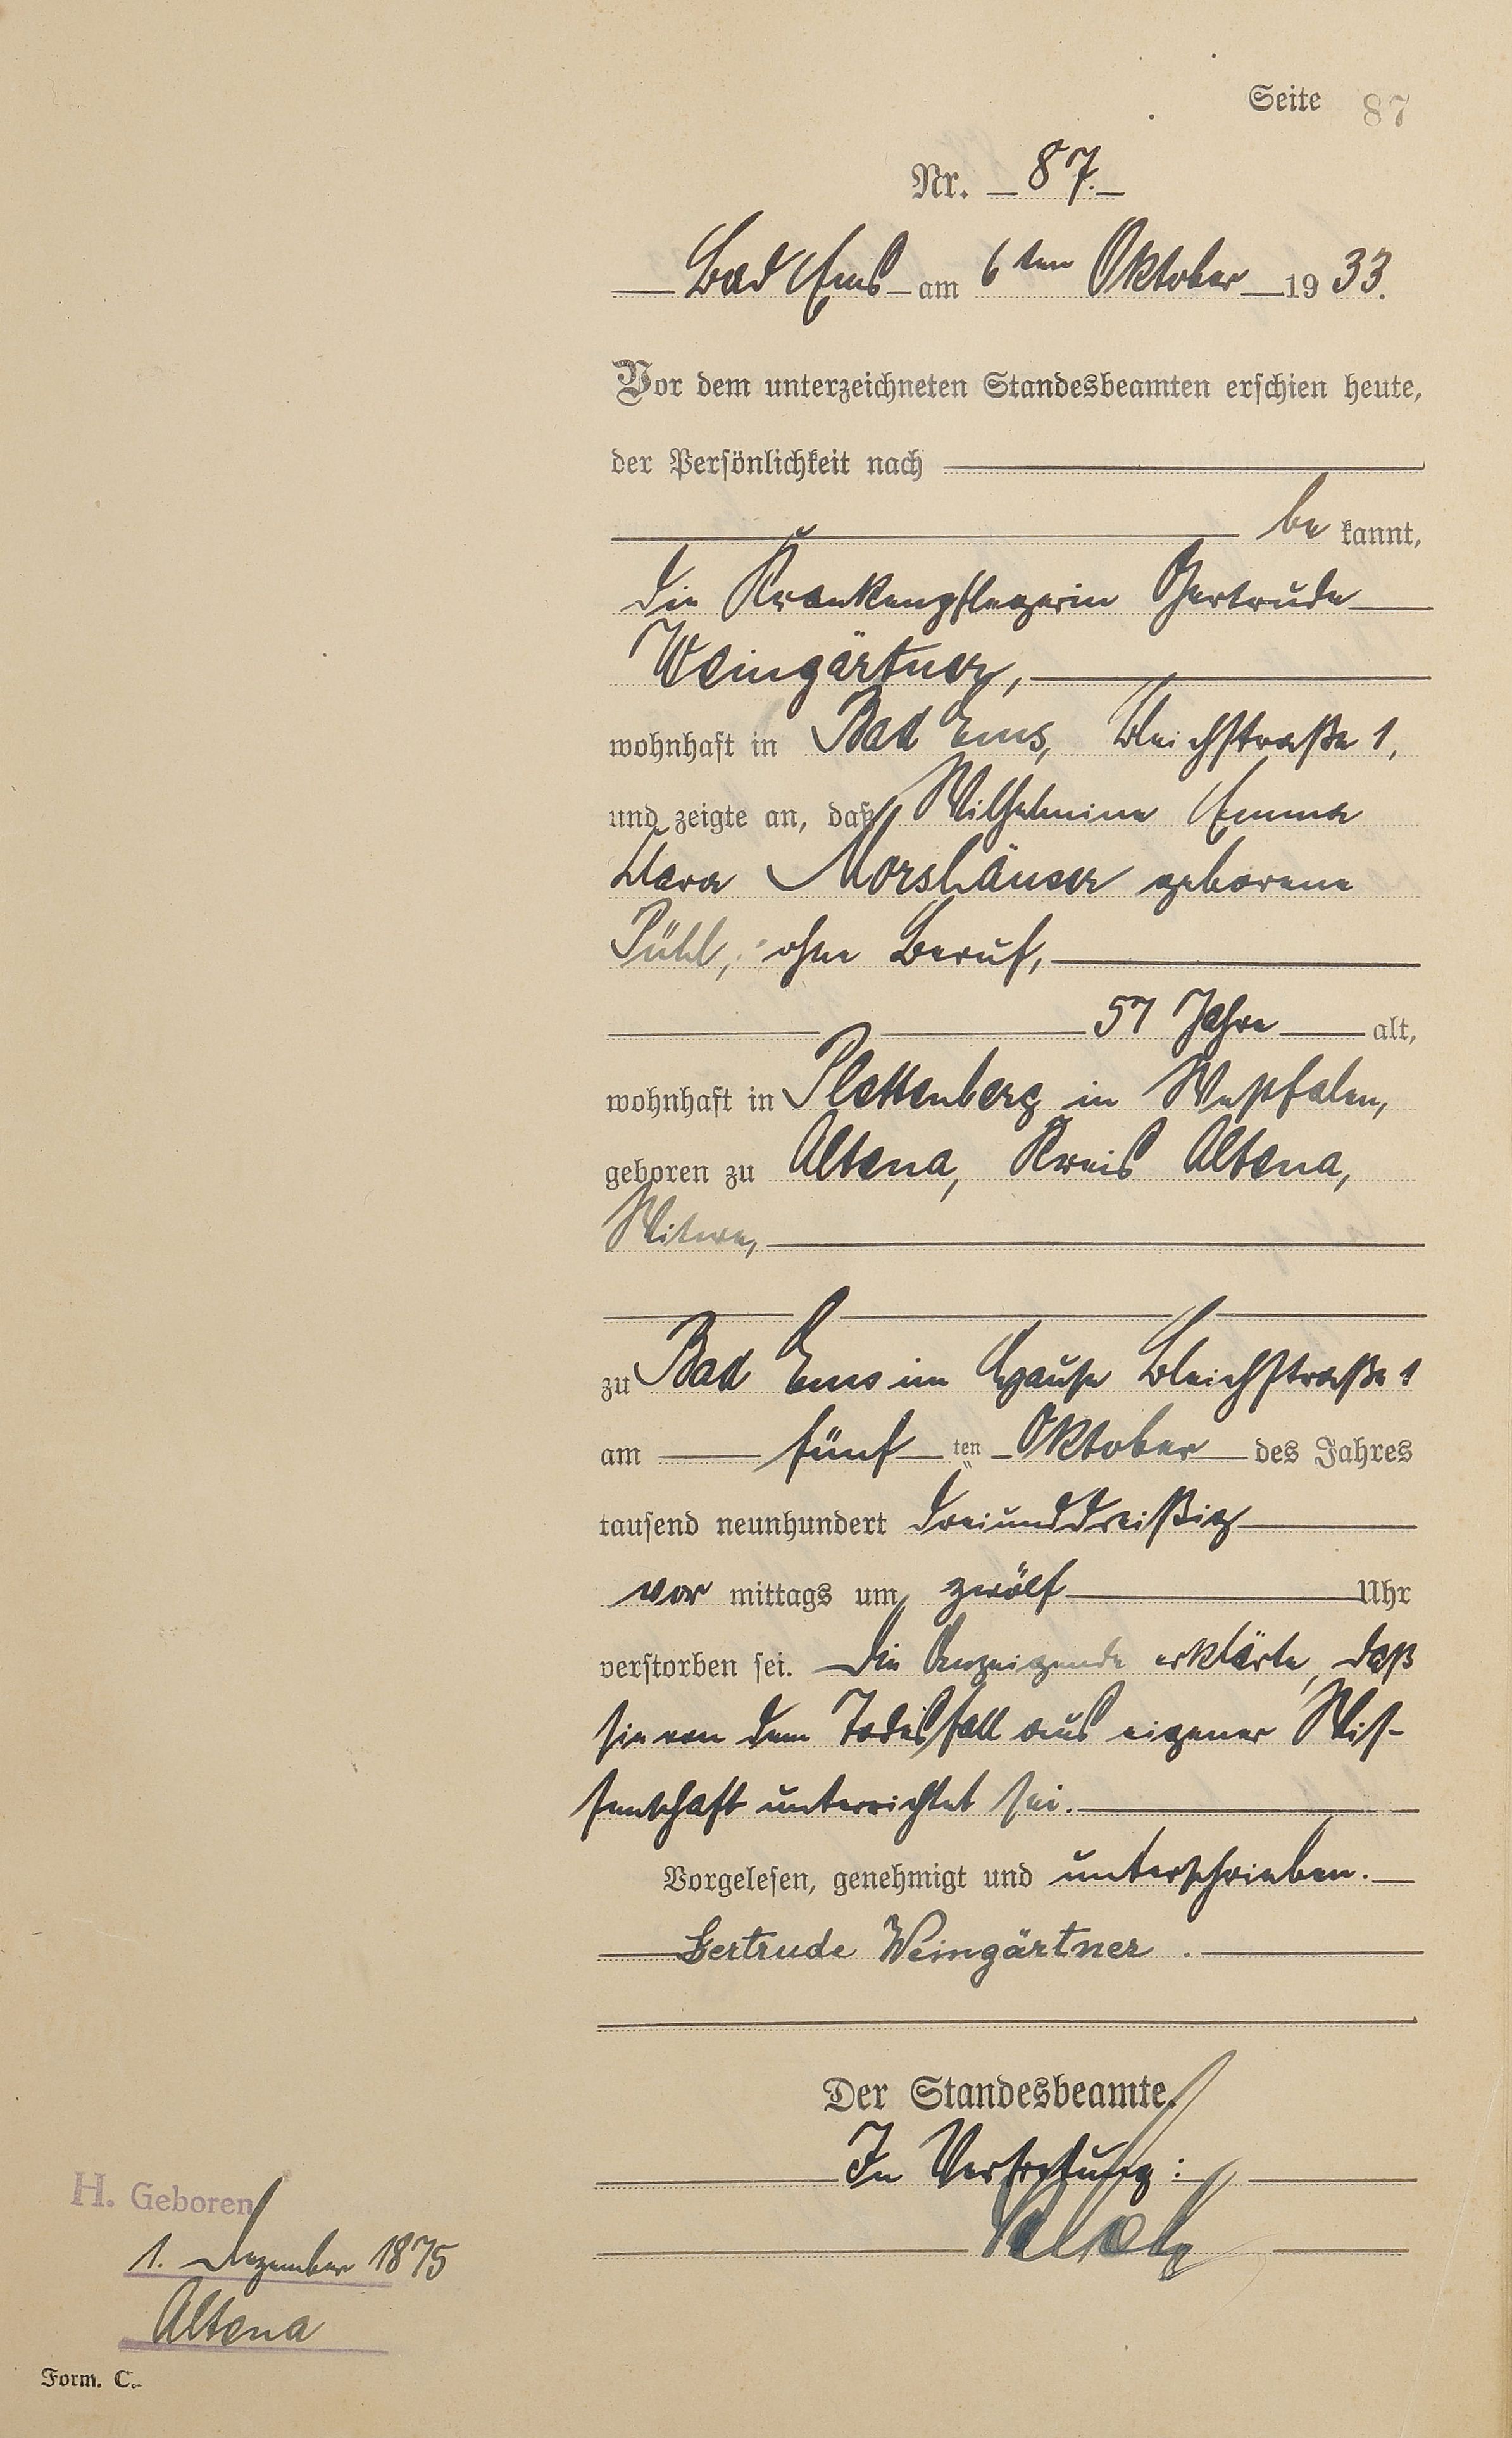 Seite 87
Nr. 87.
Bad Ems am 6ten Oktober 1933.
Vor dem unterzeichneten Standesbeamten erschien heute,
der Persönlichkeit nach
be kannt,
die Krankenpflegerin Gertrude
Weingärtner,
wohnhaft in Bad Ems, Bleichstraße 1,
und zeigte an, daß Wilhelmine Emma
Klara Morshäuser geborene
Pühl, ohne Beruf,
57 Jahre alt,
wohnhaft in Plettenberg in Westfalen,
geboren zu Altena, Kreis Altena,
Witwe,
zu Bad Ems im Hause Bleichstraße 1
am fünf ten Oktober des Jahres
tausend neunhundert dreiunddreißig
vor mittags um zwölf Uhr
verstorben sei. Die Anzeigende erklärte, daß
sie von dem Todesfall aus eigener Wis-
senschaft unterrichtet sei.
Vorgelesen, genehmigt und unterschrieben.
Gertrude Weingärtner.
Der Standesbeamte.
In Vertretung:
H. Geboren
1. Dezember 1875
Altena
Form. C.